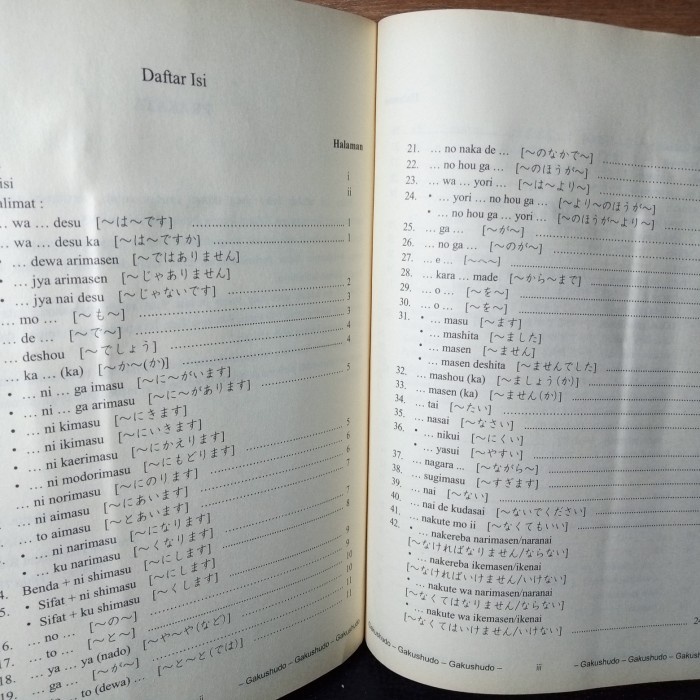 Daftar Isi
Halaman
isi i
alimat : ii
… wa … desu [〜は〜です] 1
… wa … desu ka [〜は〜ですか] 1
• … dewa arimasen [〜ではありません]
• … jya arimasen [〜じゃありません]
• … jya nai desu [〜じゃないです] 2
… mo … [〜も〜] 3
… de … [〜で〜] 3
deshou [〜でしょう] 4
… ka … (ka) [〜か〜(か)] 4
• … ni … ga imasu [〜に〜がいます] 5
• … ni … ga arimasu [〜に〜があります]
• … ni kimasu [〜にきます]
• … ni ikimasu [〜にいきます]
• … ni kaerimasu [〜にかえります]
• … ni modorimasu [〜にもどります] 5
… ni norimasu [〜にのります] 6
… ni aimasu [〜にあいます] 6
… to aimasu [〜とあいます] 7
• … ni narimasu [〜になります] 7
• … ku narimasu [〜くなります] 8
4. Benda + ni shimasu [〜にします] 9
5. • Sifat + ni shimasu [〜にします] 9
• Sifat + ku shimasu [〜くします] 10
16. … no … [〜の〜] 10
17. … to … [〜と〜] 11
18. … ya … ya (nado) [〜や〜や(など)] 11
19. … ga … [〜が〜]
… to (dewa) … [〜と〜と(では)]
– Gakushudo – Gakushudo – Gakushudo –
ii
21. … no naka de … [〜のなかで〜]
22. … no hou ga … [〜のほうが〜]
23. … wa … yori … [〜は〜より〜]
24. • … yori … no hou ga … [〜より〜のほうが〜]
• … no hou ga … yori … [〜のほうが〜より〜]
25. … ga … [〜が〜]
26. … no ga … [〜のが〜]
27. … e … [〜へ〜]
28. … kara … made [〜から〜まで]
29. … o … [〜を〜]
30. … o … [〜を〜]
31. • … masu [〜ます]
• … mashita [〜ました]
• … masen [〜ません]
• … masen deshita [〜ませんでした]
32. … mashou (ka) [〜ましょう(か)]
33. … masen (ka) [〜ません(か)]
34. … tai [〜たい]
35. … nasai [〜なさい]
36. • … nikui [〜にくい]
• … yasui [〜やすい]
37. … nagara … [〜ながら〜]
38. … sugimasu [〜すぎます]
39. … nai [〜ない]
40. … nai de kudasai [〜ないでください]
41. … nakute mo ii [〜なくてもいい]
42. • … nakereba narimasen/naranai
[〜なければなりません/ならない]
• … nakereba ikemasen/ikenai
[〜なければいけません/いけない]
• … nakute wa narimasen/naranai
[〜なくてはなりません/ならない]
• … nakute wa ikemasen/ikenai
[〜なくてはいけません/いけない]
Gakushudo – Gakushudo – Gakushudo –
iii
– Gakushudo – Gakushudo – Gakushudo